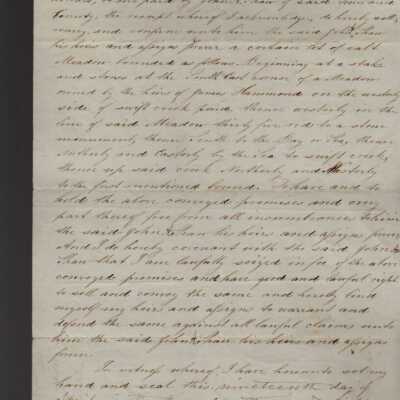 to me paid by John Shaw of said Town and
County, the receipt whereof I acknowledge, do hereby sell,
convey, and confirm unto him the said John Shaw
his heirs and assigns forever a certain lot of salt
Meadow bounded as follows Beginning at a stake
and stones at the South East corner of a Meadow
owned by the heirs of James Hammond on the westerly
side of swift creek thence westerly in the
line of said Meadow thirty five rod to a stone
monument, thence South to the Bay or Sea, thence
and Easterly by the Sea to swift creek,
thence up said creek Northerly and Westerly
to the first mentioned bound. To have and to
hold the above conveyed premises and every
part thereof free from all incumbrances to him
the said John Shaw his heirs and assigns forever
And I do hereby covenant with the said John
Shaw that I am lawfully seized in fee of the above
conveyed premises and have good and lawful right
to sell and convey the same and hereby bind
myself my heirs and assigns to warrant and
defend the same against all lawful claims unto
him the said John Shaw his heirs and assigns
forever.
In witness whereof I have hereunto set my
hand and seal this nineteenth day of